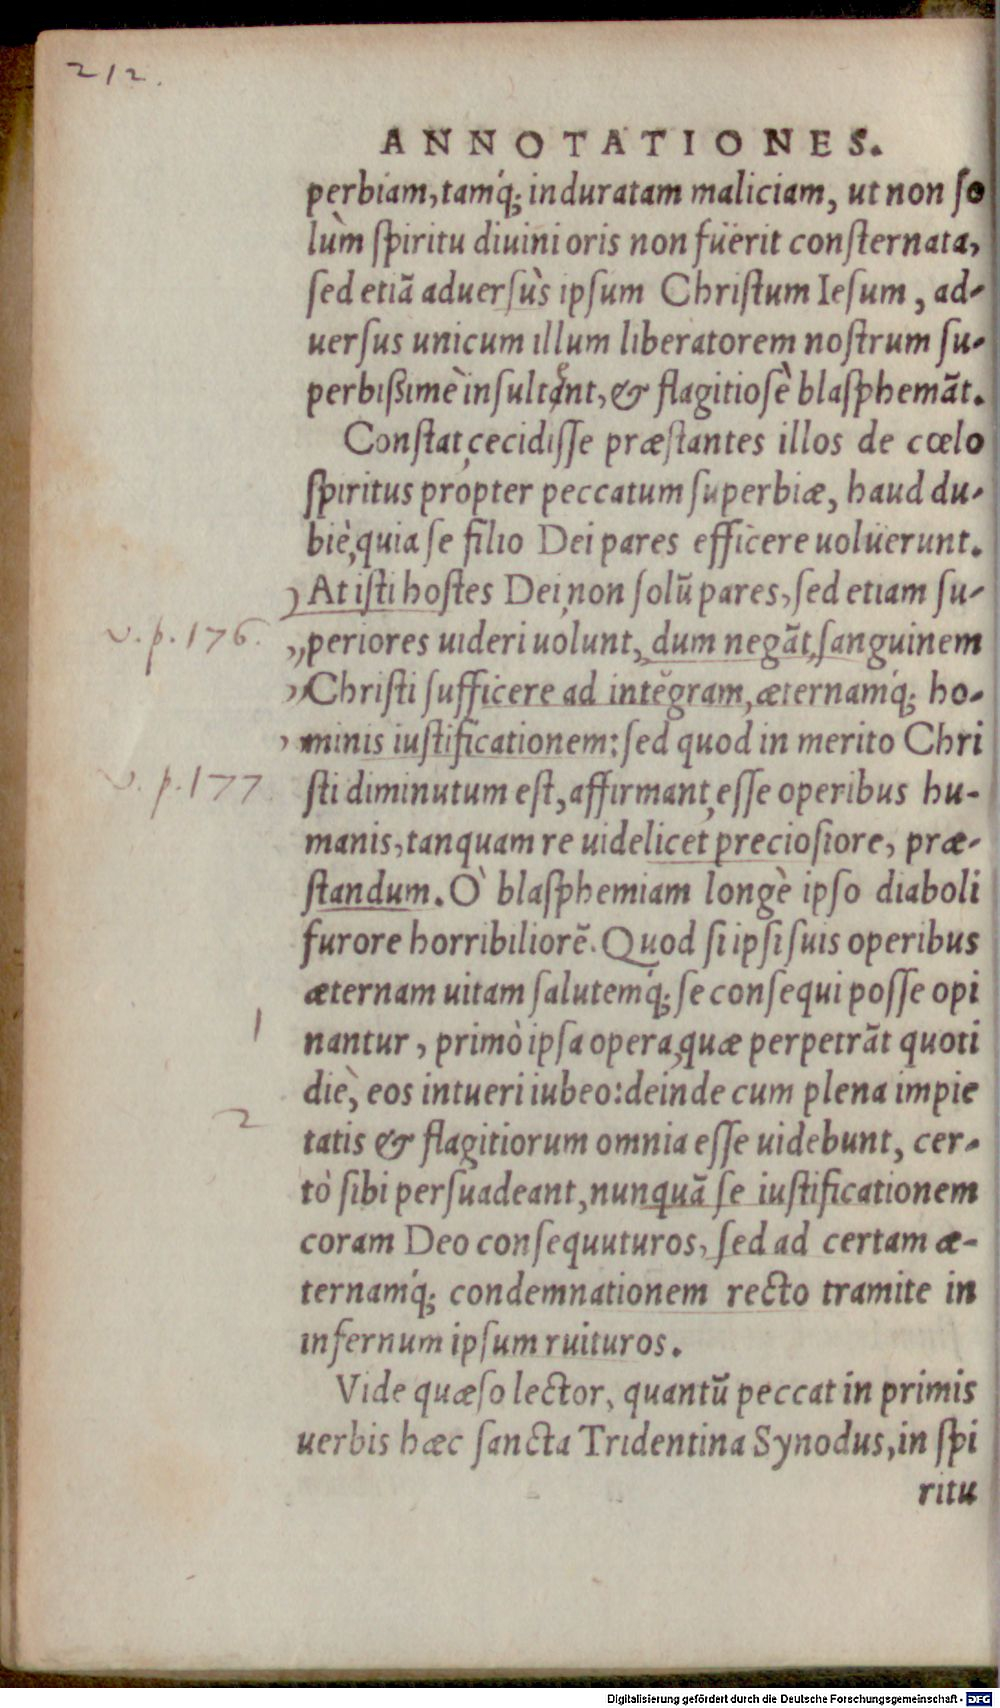 212.
ANNOTATIONES.
perbiam, tamq́; induratam maliciam, ut non ſo
lùm ſpiritu diuini oris non füerit conſternata,
ſed etiã aduerſùs ipſum Chriſtum Ieſum, ad-
uerſus unicum illum liberatorem noſtrum ſu-
perbißimè inſultant, & flagitioſè blaſphemãt.
Conſtat, cecidiſſe præſtantes illos de cœlo
ſpiritus propter peccatum ſuperbiæ, haud du-
biè, quia ſe filio Dei pares efficere uoluerunt.
At iſti hoſtes Dei, non ſolũ pares, ſed etiam ſu-
v. p. 176.
periores uideri uolunt, dum negãt, ſanguinem
Chriſti ſufficere ad integram, æternamq́; ho-
minis iuſtificationem: ſed quod in merito Chri
v. p. 177
ſti diminutum eſt, affirmant, eſſe operibus hu-
manis, tanquam re uidelicet precioſiore, præ-
ſtandum. Ò blaſphemiam longè ipſo diaboli
furore horribiliorẽ. Quod ſi ipſi ſuis operibus
æternam uitam ſalutemq́; ſe conſequi poſſe opi
1
nantur, primò ipſa opera, quæ perpetrãt quoti
die, eos intueri iubeo: deinde cum plena impie
2
tatis & flagitiorum omnia eſſe uidebunt, cer-
tò ſibi perſuadeant, nunquã ſe iuſtificationem
coram Deo conſequuturos, ſed ad certam æ-
ternamq́; condemnationem recto tramite in
infernum ipſum ruituros.
Vide quæſo lector, quantũ peccat in primis
uerbis hæc ſancta Tridentina Synodus, in ſpi
ritu
Digitalisierung gefördert durch die Deutsche Forschungsgemeinschaft - DFG